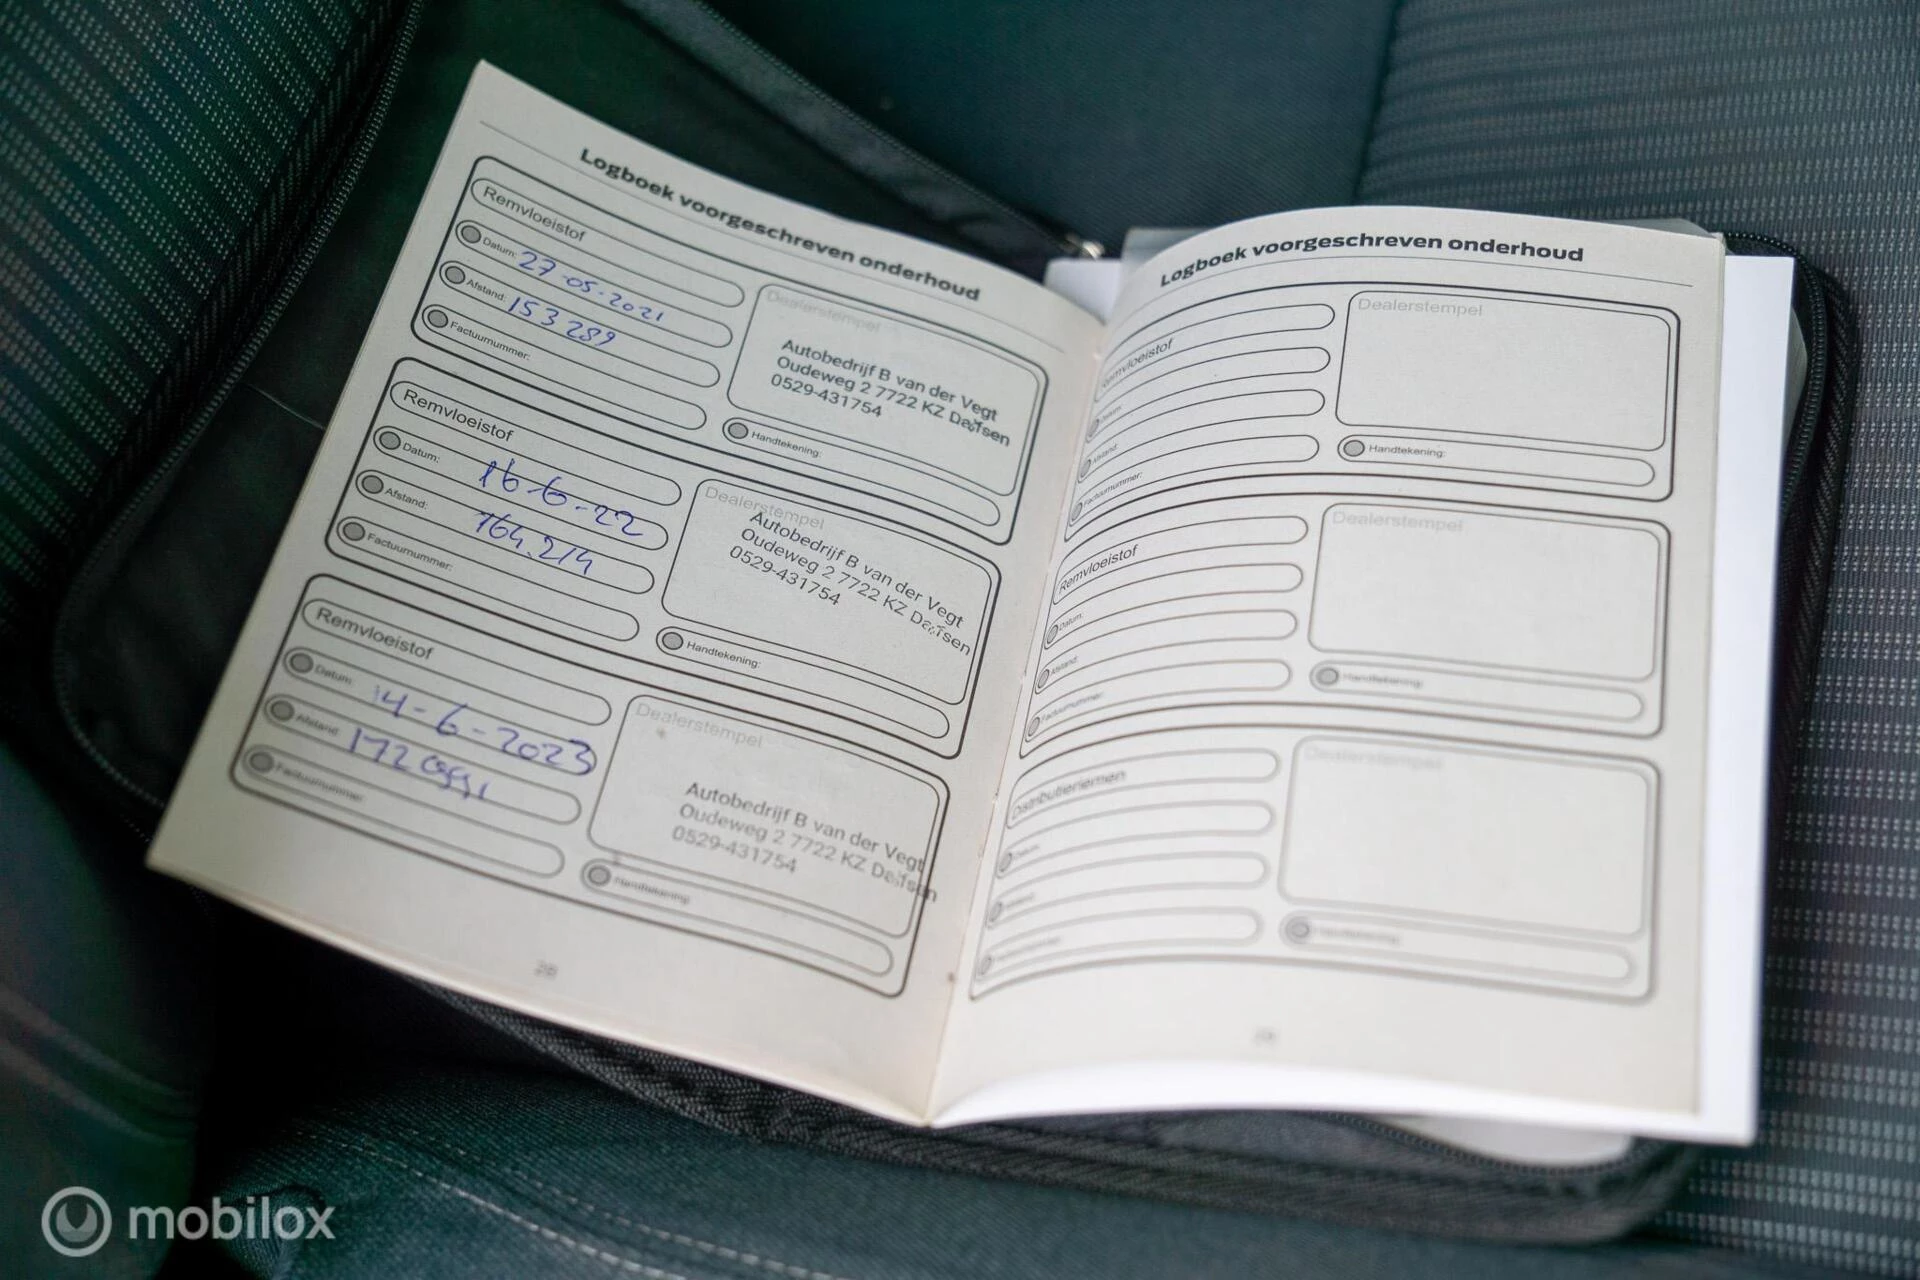 Logboek voorgeschreven onderhoud
Remvloeistof
Datum: 27-05-2021
Afstand: 153289
Factuurnummer:
Dealerstempel
Autobedrijf B van der Vegt
Oudeweg 2 7722 KZ Dalfsen
0529-431754
Handtekening:
Remvloeistof
Datum: 16-6-22
Afstand: 164.214
Factuurnummer:
Dealerstempel
Autobedrijf B van der Vegt
Oudeweg 2 7722 KZ Dalfsen
0529-431754
Handtekening:
Remvloeistof
Datum: 14-6-2023
Afstand:
Factuurnummer:
Dealerstempel
Autobedrijf B van der Vegt
Oudeweg 2 7722 KZ Dalfsen
0529-431754
Handtekening:
28
Logboek voorgeschreven onderhoud
Remvloeistof
Datum:
Afstand:
Factuurnummer:
Dealerstempel
Handtekening:
Remvloeistof
Datum:
Afstand:
Factuurnummer:
Dealerstempel
Handtekening:
Distributieriemen
Datum:
Dealerstempel
Handtekening:
mobilox